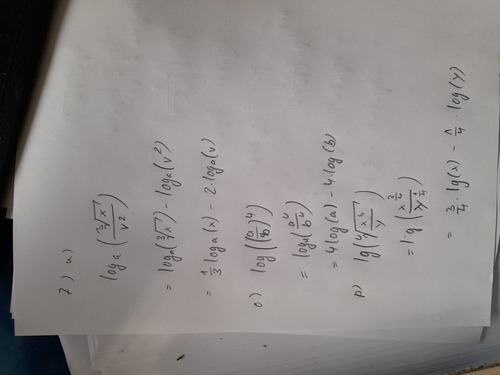 7) u)
log a (∛x / v²)
= log a (∛x) − log a (v²)
= 1/3 log a (x) − 2 · log a (v)
o) log((a/b)⁴)
= log a (a⁴/b⁴)
= 4 log(a) − 4 · log(b)
p) lg(
= lg (
= 3/4 · lg(x) − 1/4 · log(y)